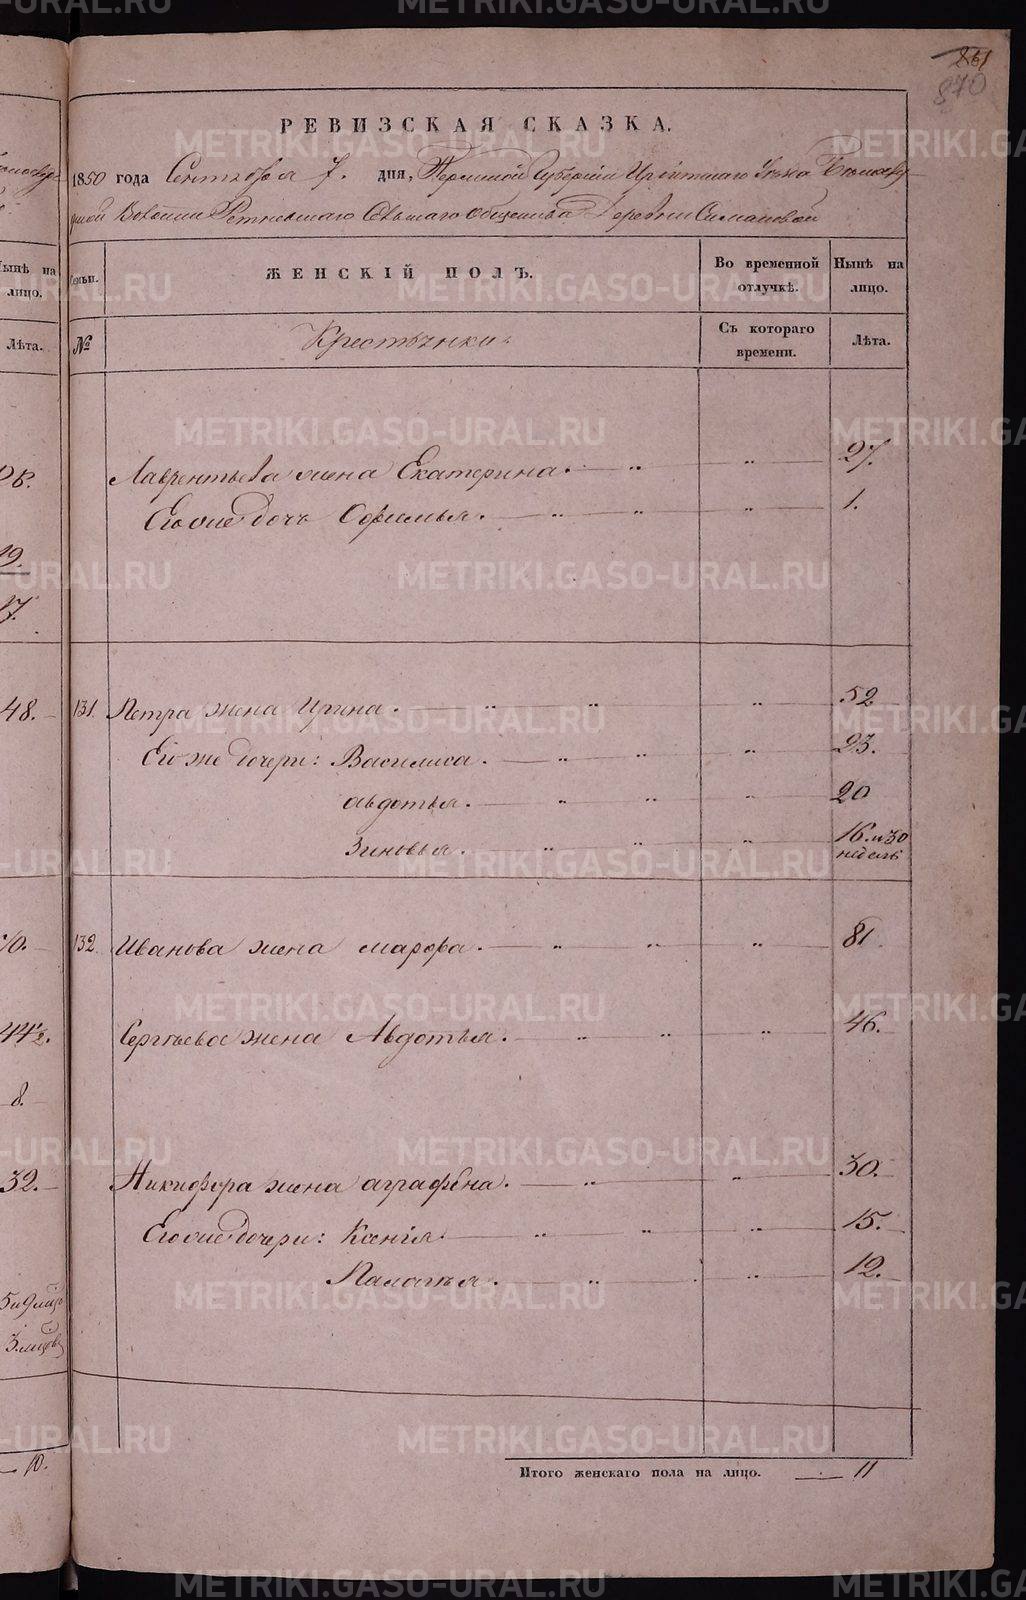 861
870
РЕВИЗСКАЯ СКАЗКА.
1850 года Сентября 7. дня, Пермской Губернии Ирбитскаго Уезда
Волости Сельскаго Общества Деревни Симановой
Семьи.
ЖЕНСКІЙ ПОЛЪ.
Во временной отлучкѣ.
Нынѣ на лицо.
№
Крестьянки.
Съ котораго времени.
Лѣта.
Нынѣ на лицо.
Лѣта.
Лаврентьева жена Екатерина. 27.
Его же дочь Офимья. 1.
19.
17.
48. 131 Петра жена Ирина. 52
Его же дочери: Василиса. 23.
авдотья. 20
Зиновья. 16. и 30 недель
70. 132 Иванова жена марфа. 81
44 1/2. Сергѣева жена Авдотья. 46.
8.
32. Никифора жена аграфѣна. 30.
Его же дочери: Ксенія. 15.
Палагья. 12.
Итого женскаго пола на лицо. 11
10.
METRIKI.GASO-URAL.RU